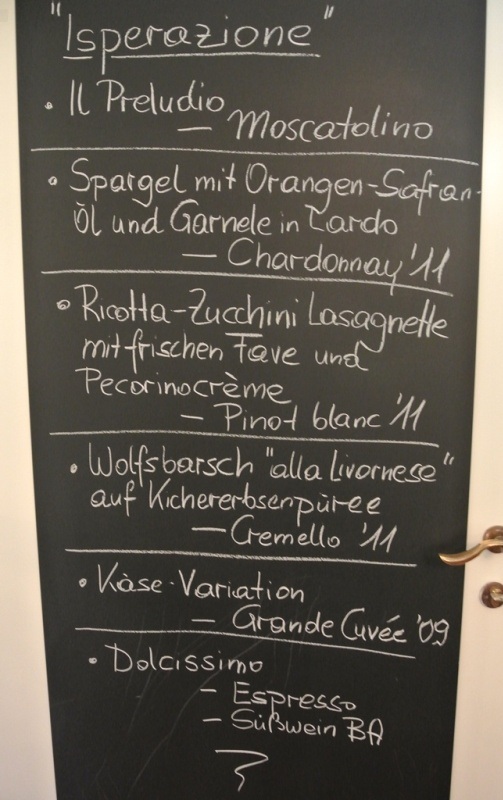 "Isperazione"
• Il Preludio
— Moscatolino
• Spargel mit Orangen-Safran-
Öl und Garnele in Lardo
— Chardonnay '11
• Ricotta-Zucchini Lasagnette
mit frischen Fave und
Pecorinocrème
— Pinot blanc '11
• Wolfsbarsch "alla livornese"
auf Kichererbsenpüree
— Cremello '11
• Käse-Variation
— Grande Cuvée '09
• Dolcissimo
— Espresso
— Süßwein BA